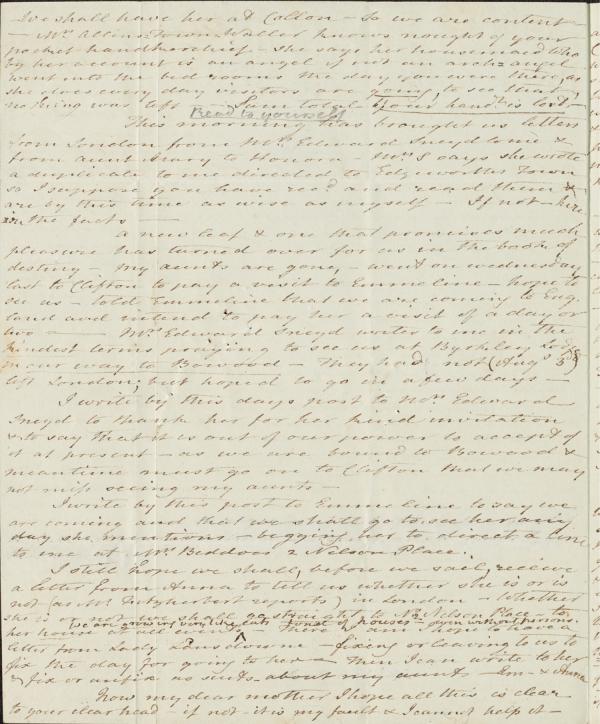 We shall have her at Collon - So we are content -
- Mrs. Allins Town Waller knows nought of your
pocket handkerchief - she says her housemaid who
by her account is an angel if not an arch-angel
went into the bed rooms the day you were there, as
she does every day visitors are going, to see that
nothing was left - Sum total yours handf is lost -
Read to yourself
This morning has brought us letters
from London from Mrs. Edward Sneyd to me &
from aunt Mary to Honora - Mrs S says she wrote
a duplicate to me directed to Edgeworths Town
so I suppose you have read and reread them &
are by this time as wise as myself - If not here
in the facts -
A new leaf & one that promises much
pleasure has turned over for us in the book of
destiny - my aunts are gone, - went on wednesday
last to Clifton to pay a visit to Emmeline - hope to
see us - told Emmeline that we are coming to Eng
land and intend to pay her a visit of a day or
two - Mrs. Edward Sneyd writes to me in the
kindest terms praying to see us at Byrkley Lodge
in our way to Bowood - They had not (Augt 3d)
left London; but hoped to go in a few days -
I write by this days post to Mrs. Edward
Sneyd to thank her for her kind invitation
& to say that it is out of our power to accept of
it at present - as we are bound to Bowood &
meantime must go on to Clifton that we may
not miss seeing my aunts -
I write by this post to Emmeline to say we
are coming and that we shall go to see her any
day she mentions - begging her to direct a line
to me at Mrs. Beddoes 2 Nelson Place.
I still hope we shall, before we sail, receive
a letter from Anna to tell us whether she is or is
not (as Mr Fitzherbert reports) in London - Whether
she is or not we shall go straight to No Nelson Place - to
we are growing very like cats fond of houses - even without persons.
her house at all events - There I am I hope to have a
letter from Lady Lansdowne - fixing or leaving to us to
fix the day for going to her - Then I can write to her
& fix or unfix as suits about my aunts - Em - & Anna
Now my dear mother I hope all this is clear
to your clear head - if not - it is my fault & I cannot help it -